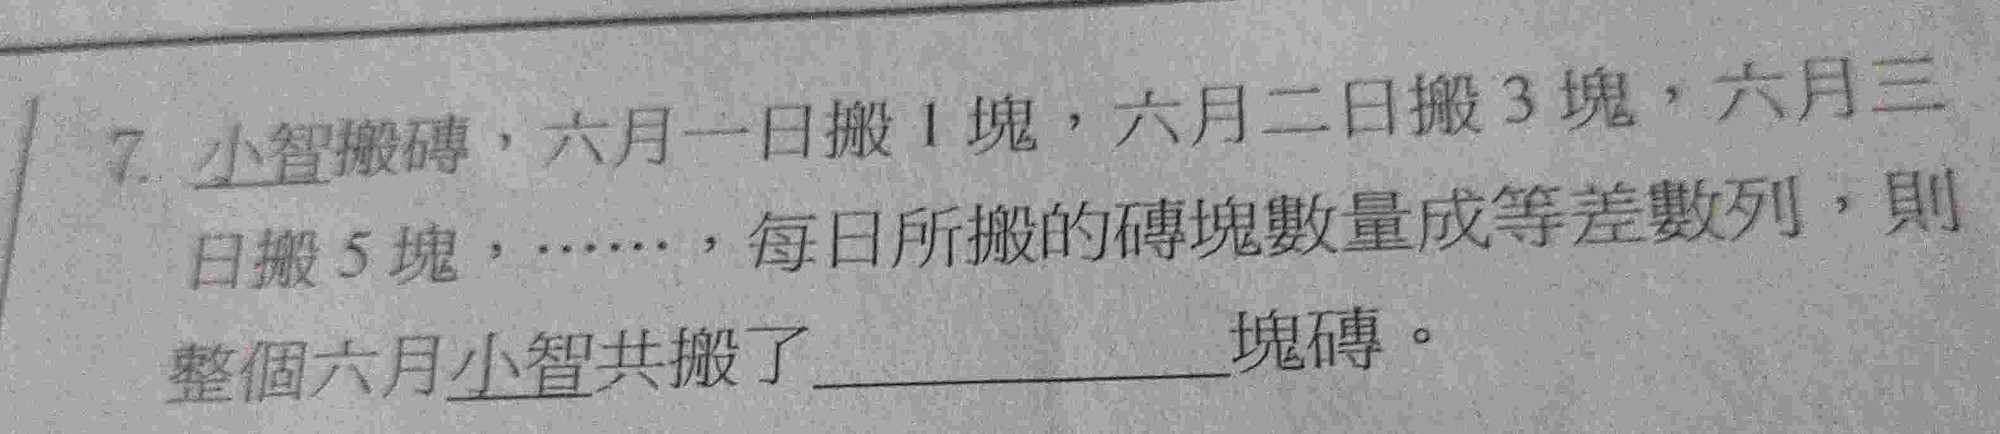 7. 小智搬磚，六月一日搬 1 塊，六月二日搬 3 塊，六月三
日搬 5 塊，……，每日所搬的磚塊數量成等差數列，則
整個六月小智共搬了＿＿＿＿＿＿塊磚。